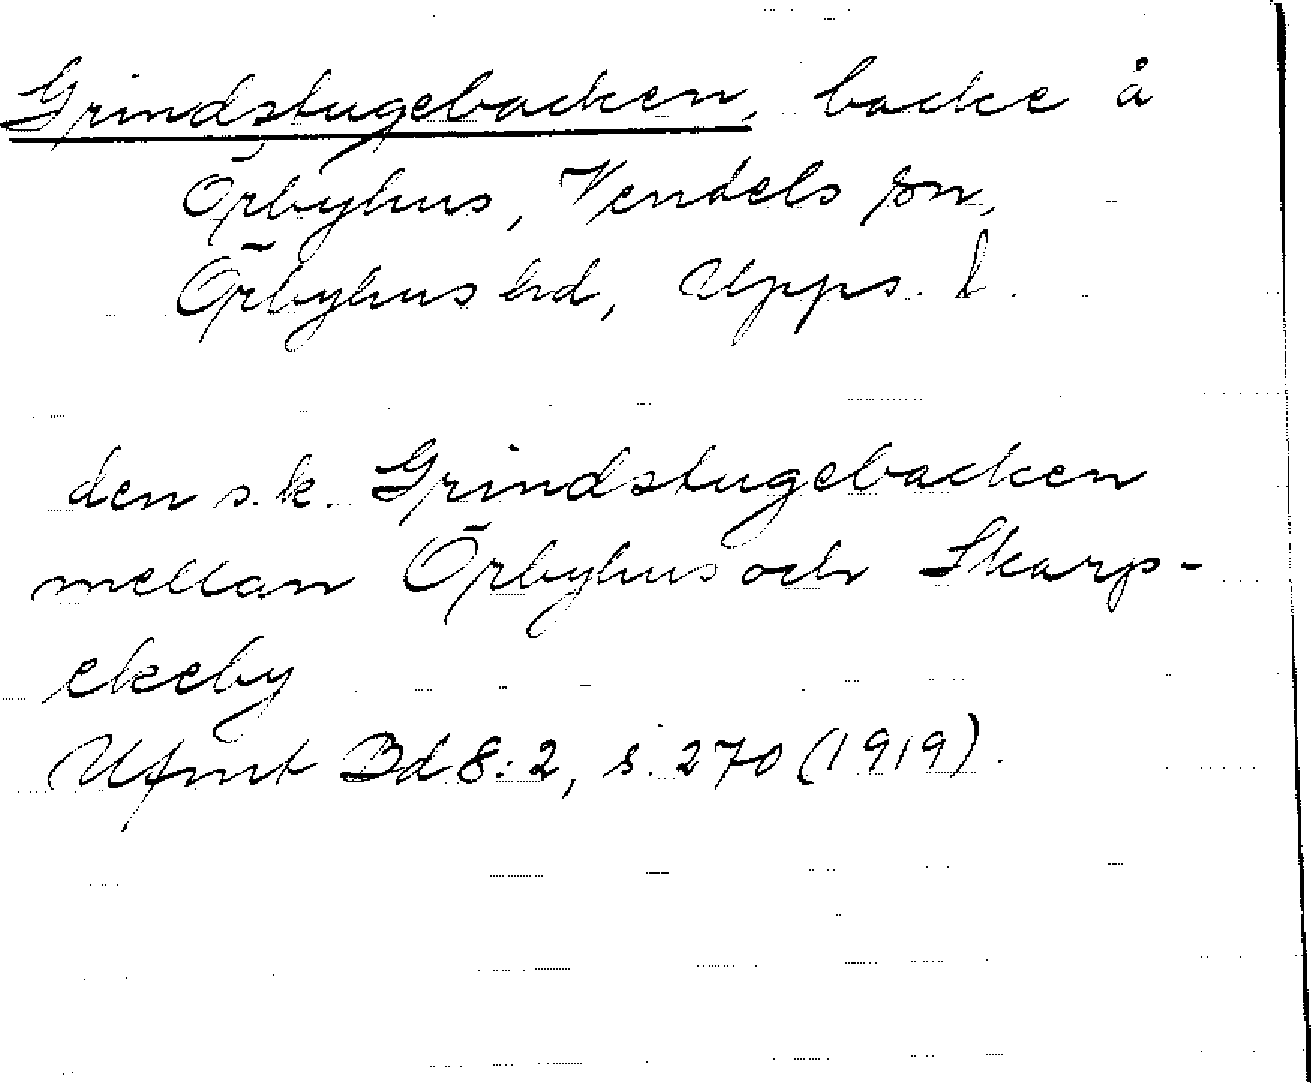 Grindstugebacken, backe å
Örbyhus, Vendels sn,
Örbyhus hd, Upps. l.
den s.k. Grindstugebacken
mellan Örbyhus och Skarp-
ekeby
Ufmt Bd 8:2, s. 270 (1919).